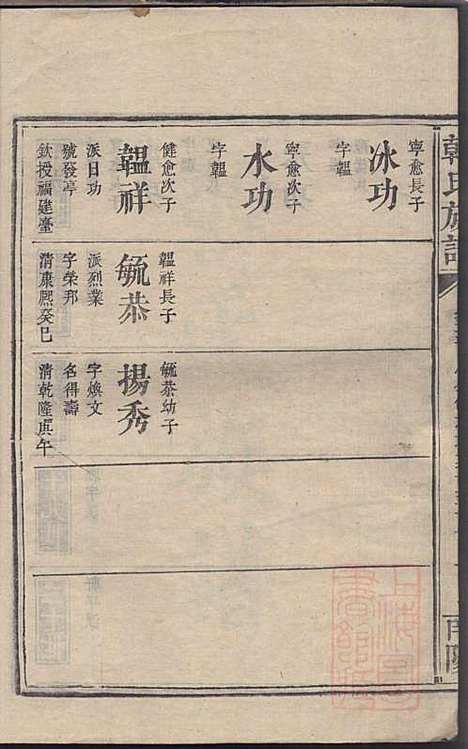 韓氏族譜
寧愈長子
冰功
字韞
寧愈次子
水功
字韞
健愈次子
韞祥
派日功
號發亭
欽授福建臺
韞祥長子
毓恭
派烈業
字榮邦
清康熙癸巳
毓恭幼子
揚秀
字煥文
名得壽
清乾隆庚午
南陽